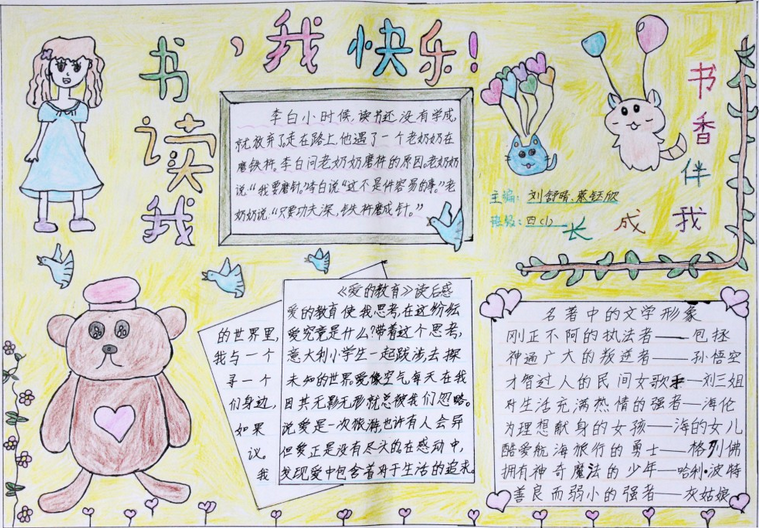 书，我快乐！
读
我
李白小时候，读书还没有学成，
就放弃了走在路上，他遇了一个老奶奶在
磨铁杵。李白问老奶奶磨杵的原因，老奶奶
说“我要磨针，”李白说“这不是件容易的事，”老
奶奶说“只要功夫深，铁杵磨成针。”
书
香
伴
我
成
长
主编：刘舒晴、
班级：四(1)
《爱的教育》读后感
爱的教育使我思考，在这纷纭
的世界里，爱究竟是什么？带着这个思考，
我与一个意大利小学生一起跋涉去探
寻一个未知的世界爱像空气，每天在我
们身边，因其无影无形就总被我们忽略。
如果说爱是一次旅游，也许有人会异
议，但爱正是没有尽头的，在感动中，
我发现爱中包含着对于生活的追求
名著中的文学形象
刚正不阿的执法者——包拯
神通广大的叛逆者——孙悟空
才智过人的民间女歌手—刘三姐
对生活充满热情的强者—海伦
为理想献身的女孩—海的女儿
酷爱航海旅行的勇士—格列佛
拥有神奇魔法的少年—哈利·波特
善良而弱小的强者——灰姑娘